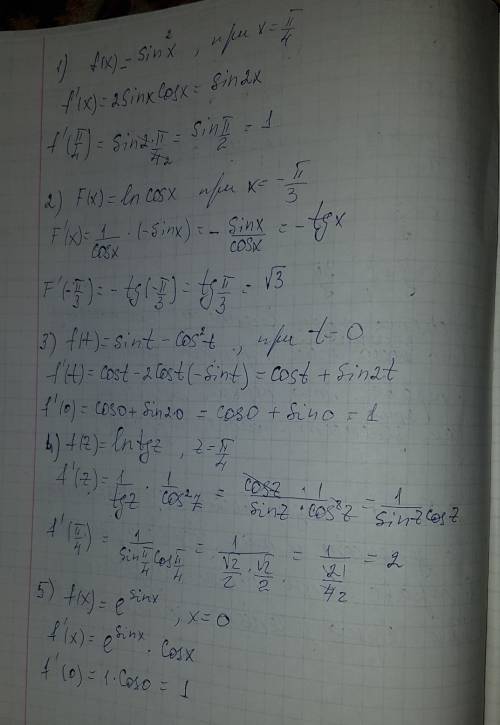 1) f(x) = sin²x, при x = π/4
f'(x) = 2sinx cosx = sin2x
f'(π/4) = sin2·π/4₂ = sin π/2 = 1
2) F(x) = ln cosx при x = -π/3
F'(x) = 1/cosx · (-sinx) = - sinx/cosx = -tgx
F'(-π/3) = -tg(-π/3) = tg π/3 = √3
3) f(t) = sint - cos²t, при t = 0
f'(t) = cost - 2cost(-sint) = cost + sin2t
f'(0) = cos0 + sin2·0 = cos0 + sin0 = 1
4) f(z) = ln tgz, z = π/4
f'(z) = 1/tgz · 1/cos²z = cosz · 1/sinz · cos²z = 1/sinz cosz
f'(π/4) = 1/(sin π/4 cos π/4) = 1/(√2/2 · √2/2) = 1/(2/4₂) = 2
5) f(x) = e^sinx, x = 0
f'(x) = e^sinx · cosx
f'(0) = 1·cos0 = 1